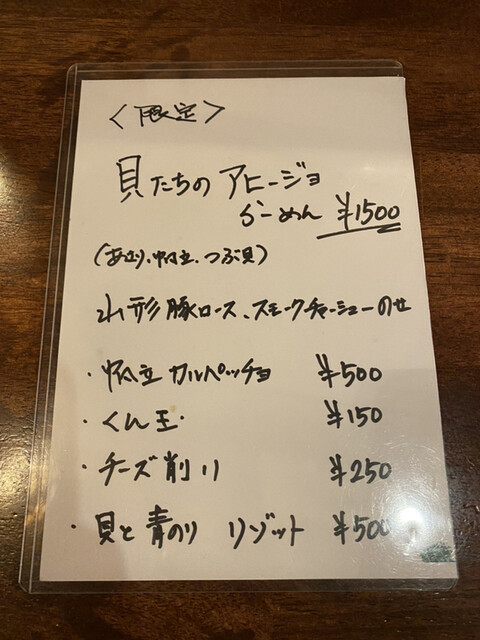 〈限定〉
貝たちのアヒージョ
らーめん ¥1500
(あさり、帆立、つぶ貝)
山形豚ロース、スモークチャーシューのせ
・帆立カルパッチョ ¥500
・くん玉 ¥150
・チーズ削り ¥250
・貝と青のり リゾット ¥500